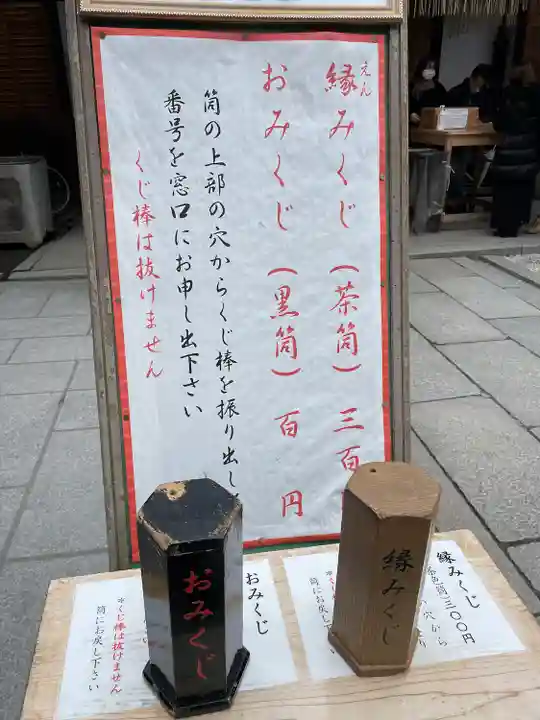 えん
縁みくじ（茶筒）三百
おみくじ（黒筒）百円
筒の上部の穴からくじ棒を振り出し、
番号を窓口にお申し出下さい
くじ棒は抜けません
おみくじ
縁みくじ
縁みくじ
(茶色筒)三〇〇円
穴から
おみくじ
*くじ棒は抜けません
筒にお戻し下さい